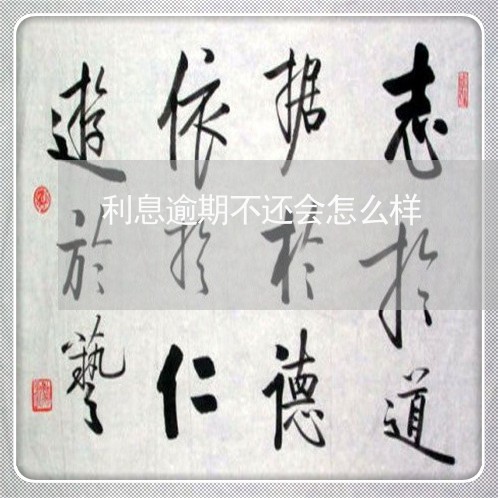 志於道
据於德
依於仁
遊於藝
利息逾期不还会怎么样